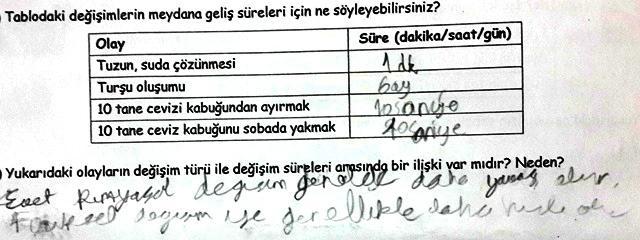 Tablodaki değişimlerin meydana geliş süreleri için ne söyleyebilirsiniz?
Olay Süre (dakika/saat/gün)
Tuzun, suda çözünmesi 1 dk
Turşu oluşumu 6ay
10 tane cevizi kabuğundan ayırmak 10saniye
10 tane ceviz kabuğunu sobada yakmak saniye
Yukarıdaki olayların değişim türü ile değişim süreleri arasında bir ilişki var mıdır? Neden?
Evet Kimyasal değişim genelde daha yavaş olur.
Fiziksel değişim ise genellikle daha hızlı